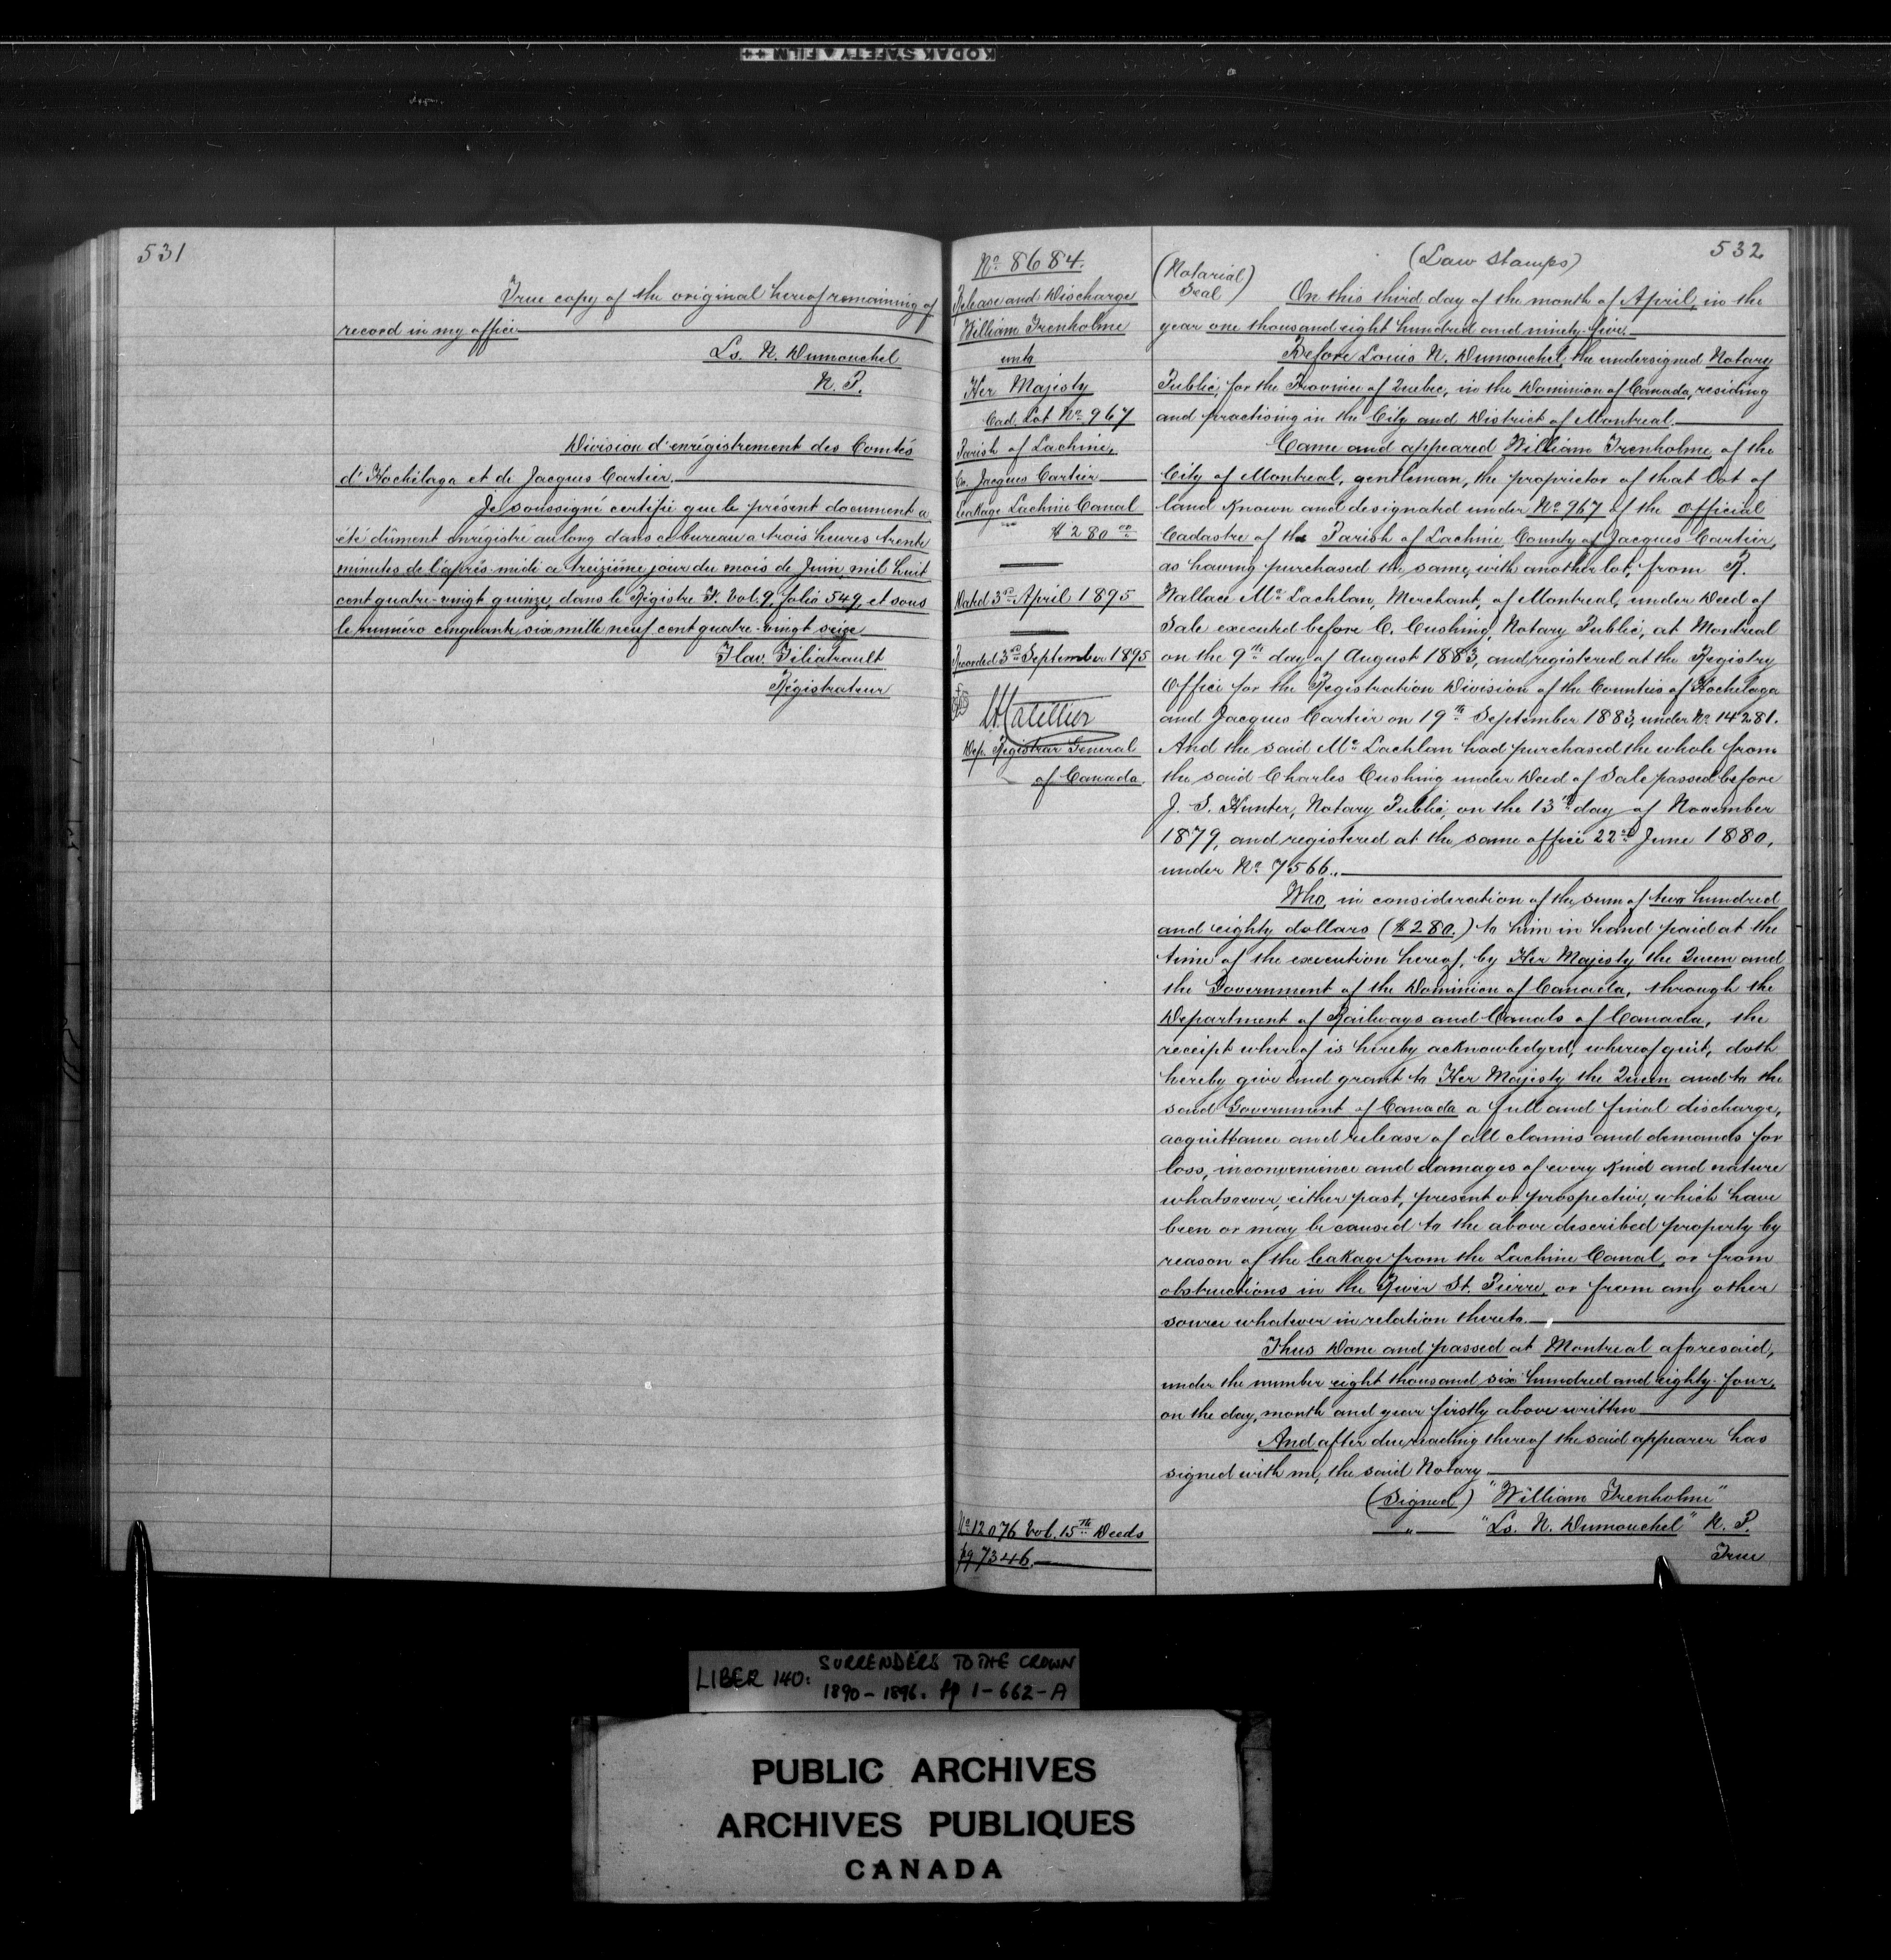 KODAK SAFETY FILM ++
531
True copy of the original hereof remaining of
record in my office
Ls. N. Dumouchel
N. P.
Division d'enrégistrement des Comtés
d'Hochelaga et de Jacques Cartier.
Je soussigné certifie que le présent document a
été dûment enrégistré au long dans ce bureau a trois heures trente
minutes de l'après-midi a treizième jour du mois de Juin, mil huit
cent quatre-vingt quinze, dans le Régistre F. Vol. 9, folio 549, et sous
le numéro cinquante six mille neuf cent quatre-vingt seize
Flav. Filiatrault
Régistrateur
No. 8684.
Release and Discharge
William Trenholme
unto
Her Majesty
Cad. Lot No. 967
Parish of Lachine,
Co. Jacques Cartier
Leakage Lachine Canal
$280 00
Dated 3rd April 1895
Recorded 3rd September 1895
Dep. Registrar General
of Canada.
No 12076 Vol. 15th Deeds
pg 7346.
532
(Law Stamps)
(Notarial
Seal)
On this third day of the month of April, in the
year one thousand eight hundred and ninety-five.
Before Louis N. Dumouchel, the undersigned Notary
Public, for the Province of Quebec, in the Dominion of Canada, residing
and practising in the City and District of Montreal.
Came and appeared William Trenholme of the
City of Montreal, gentleman, the proprietor of that lot of
land known and designated under No. 967 of the official
Cadastre of the Parish of Lachine, County of Jacques Cartier,
as having purchased the same, with another lot, from R.
Wallace Mc Lachlan, Merchant, of Montreal, under Deed of
Sale executed before C. Cushing, Notary Public, at Montreal
on the 9th day of August 1883, and registered at the Registry
Office for the Registration Division of the Counties of Hochelaga
and Jacques Cartier on 19th September 1883, under No. 14281.
And the said Mc Lachlan had purchased the whole from
the said Charles Cushing under Deed of Sale passed before
J. S. Hunter, Notary Public, on the 13th day of November
1879, and registered at the same office 22nd June 1880,
under No. 7566.
Who, in consideration of the sum of two hundred
and eighty dollars ($280.) to him in hand paid at the
time of the execution hereof, by Her Majesty the Queen and
the Government of the Dominion of Canada, through the
Department of Railways and Canals of Canada, the
receipt whereof is hereby acknowledged, whereof quit, doth
hereby give and grant to Her Majesty the Queen and to the
said Government of Canada a full and final discharge,
acquittance and release of all claims and demands for
loss, inconvenience and damages of every kind and nature
whatsoever, either past, present or prospective, which have
been or may be caused to the above described property by
reason of the leakage from the Lachine Canal, or from
obstructions in the River St. Pierre, or from any other
source whatever in relation thereto.
Thus Done and passed at Montreal aforesaid,
under the number eight thousand six hundred and eighty-four,
on the day, month and year firstly above written
And after due reading thereof the said appearer has
signed with me, the said Notary
(Signed) "William Trenholme"
" "Ls. N. Dumouchel" N. P.
True
LIBER 140: SURRENDERS TO THE CROWN
1890-1896. pp 1-662-A
PUBLIC ARCHIVES
ARCHIVES PUBLIQUES
CANADA